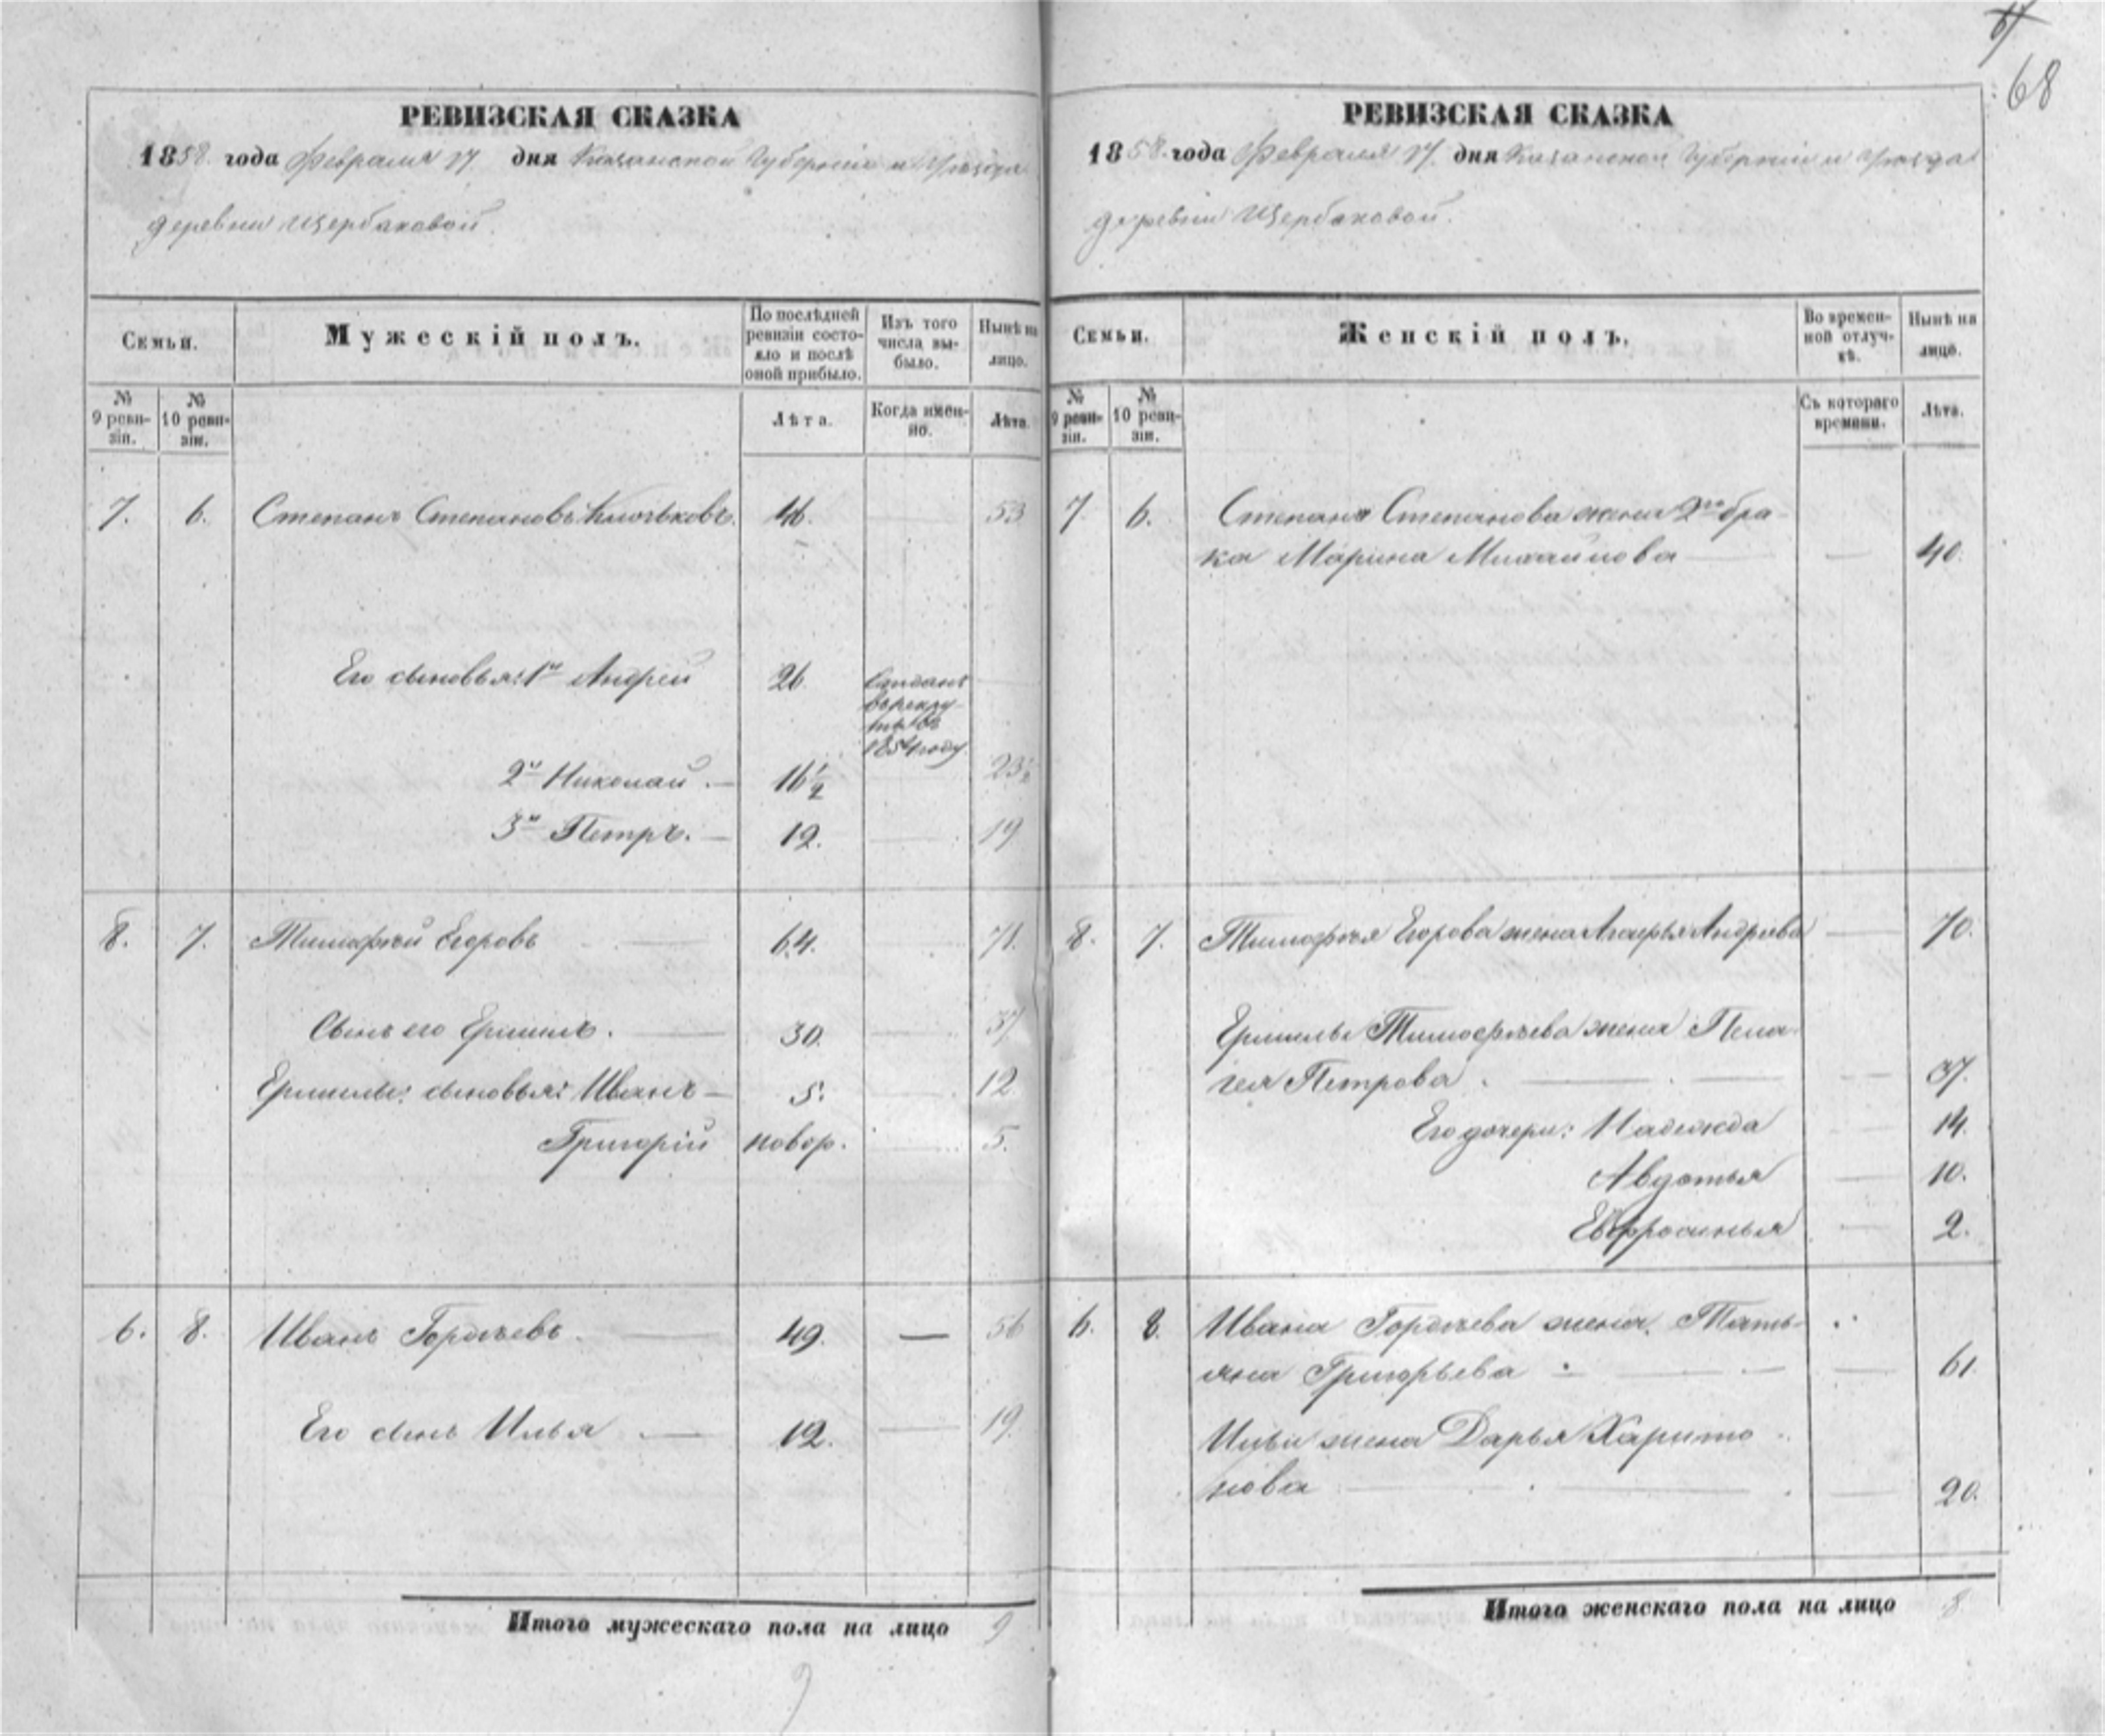 67
68
РЕВИЗСКАЯ СКАЗКА
1858. года Февраля 17. дня Казанской Губернiи и Уѣзда
деревни Щербаковой.
Семьи.
Мужескiй полъ.
По послѣдней ревизiи состояло и послѣ оной прибыло.
Изъ того числа выбыло.
Нынѣ на лицо.
№ 9 ревизiи.
№ 10 ревизiи.
Лѣта.
Когда именно.
Лѣта.
7. 6. Степанъ Степановъ Ключьковъ. 46. — 53
Его сыновья: 1й Андрей 26
Сданъ
въ рекру-
ты въ
1854 году.
2й Николай. — 16½ 23½
3й Петръ. — 12. — 19
8. 7. Тимофѣй Егоровъ — 64. — 71.
Сынъ его Ермилъ. — 30. — 37
Ермилы: сыновья: Иванъ — 5. — 12
Григорiй новор. — 5.
6. 8. Иванъ Гордѣевъ. — 49. — 56
Его сынъ Илья — 12. — 19.
Итого мужескаго пола на лицо 9
9
РЕВИЗСКАЯ СКАЗКА
1858. года Февраля 17. дня Казанской Губернiи и Уѣзда
деревни Щербаковой.
Семьи.
Женскiй полъ.
Во временной отлучкѣ.
Нынѣ на лицо.
№ 9 ревизiи.
№ 10 ревизiи.
Съ котораго времени.
Лѣта.
7. 6. Степана Степанова жена 2го бра-
ка Марина Михайлова — — 40.
8. 7. Тимофѣя Егорова жена Агафья Андрѣева — 70.
Ермилы Тимофѣева жена Пела-
гея Петрова. — — — 37.
Его дочери: Надежда — 14.
Авдотья — 10.
Евфросинья — 2.
6. 8. Ивана Гордѣева жена Тать-
яна Григорьева — — — 61.
Ильи жена Дарья Харито-
нова — — — 20.
Итого женскаго пола на лицо 8